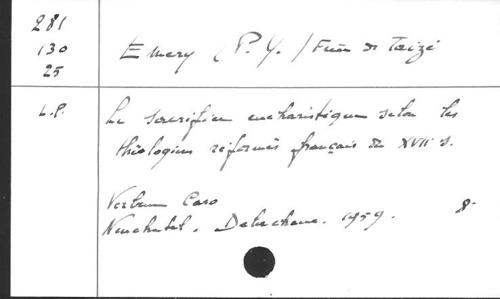 281
130
25
Emery (P. Y.) / Frère de Taizé
L.P.
Le sacrifice eucharistique selon les
théologiens réformés français du XVII s.
Verbum Caro
Neuchatel. Delachaux. 1959. 8°